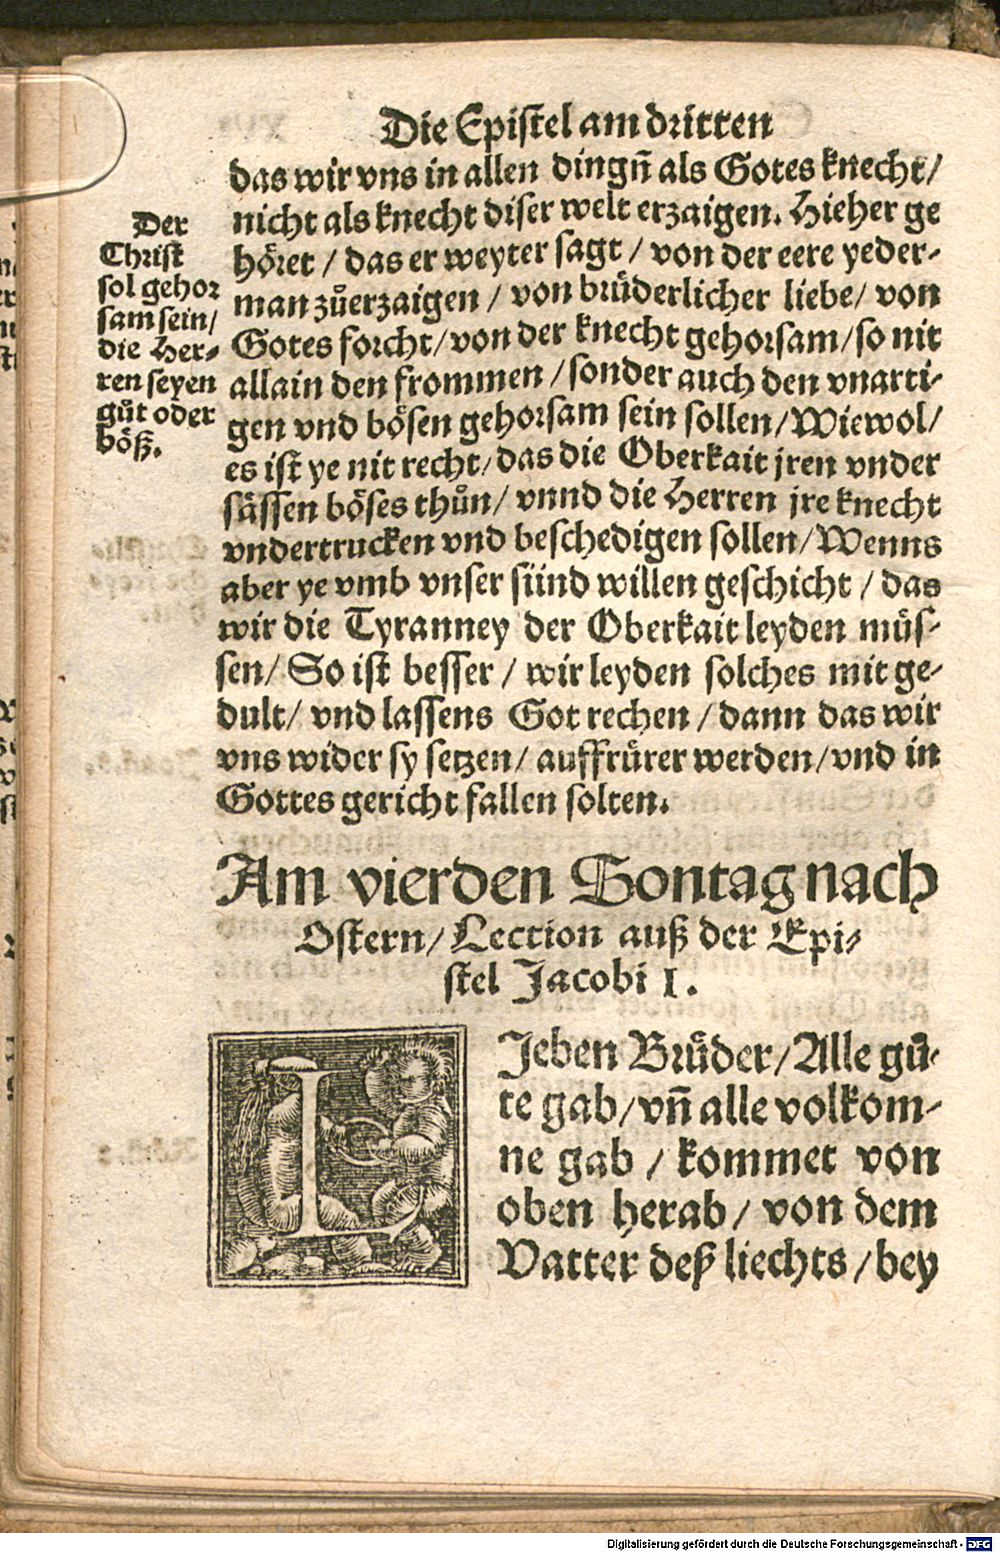 Die Epistel am dritten
das wir vns in allen dingñ als Gotes knecht/
nicht als knecht diser welt erzaigen. Hieher ge
höret / das er weyter sagt / von der eere yeder-
man zůerzaigen / von brüderlicher liebe/ von
Gotes forcht/ von der knecht gehorsam/ so nit
allain den frommen / sonder auch den vnarti-
gen vnd bösen gehorsam sein sollen/ Wiewol/
es ist ye nit recht/ das die Oberkait jren vnder
sässen böses thůn/ vnnd die Herren jre knecht
vndertrucken vnd beschedigen sollen/ Wenns
aber ye vmb vnser sünd willen geschicht / das
wir die Tyranney der Oberkait leyden müs-
sen/ So ist besser / wir leyden solches mit ge-
dult/ vnd lassens Got rechen / dann das wir
vns wider sy setzen/ auffrürer werden/ vnd in
Gottes gericht fallen solten.
Der
Christ
sol gehor
sam sein/
die Her-
ren seyen
gůt oder
böß.
Am vierden Sontag nach
Ostern/ Lection auß der Epi-
stel Jacobi 1.
LJeben Brüder/ Alle gů-
te gab/ vñ alle volkom-
ne gab / kommet von
oben herab/ von dem
Vatter deß liechts / bey
Digitalisierung gefördert durch die Deutsche Forschungsgemeinschaft - DFG